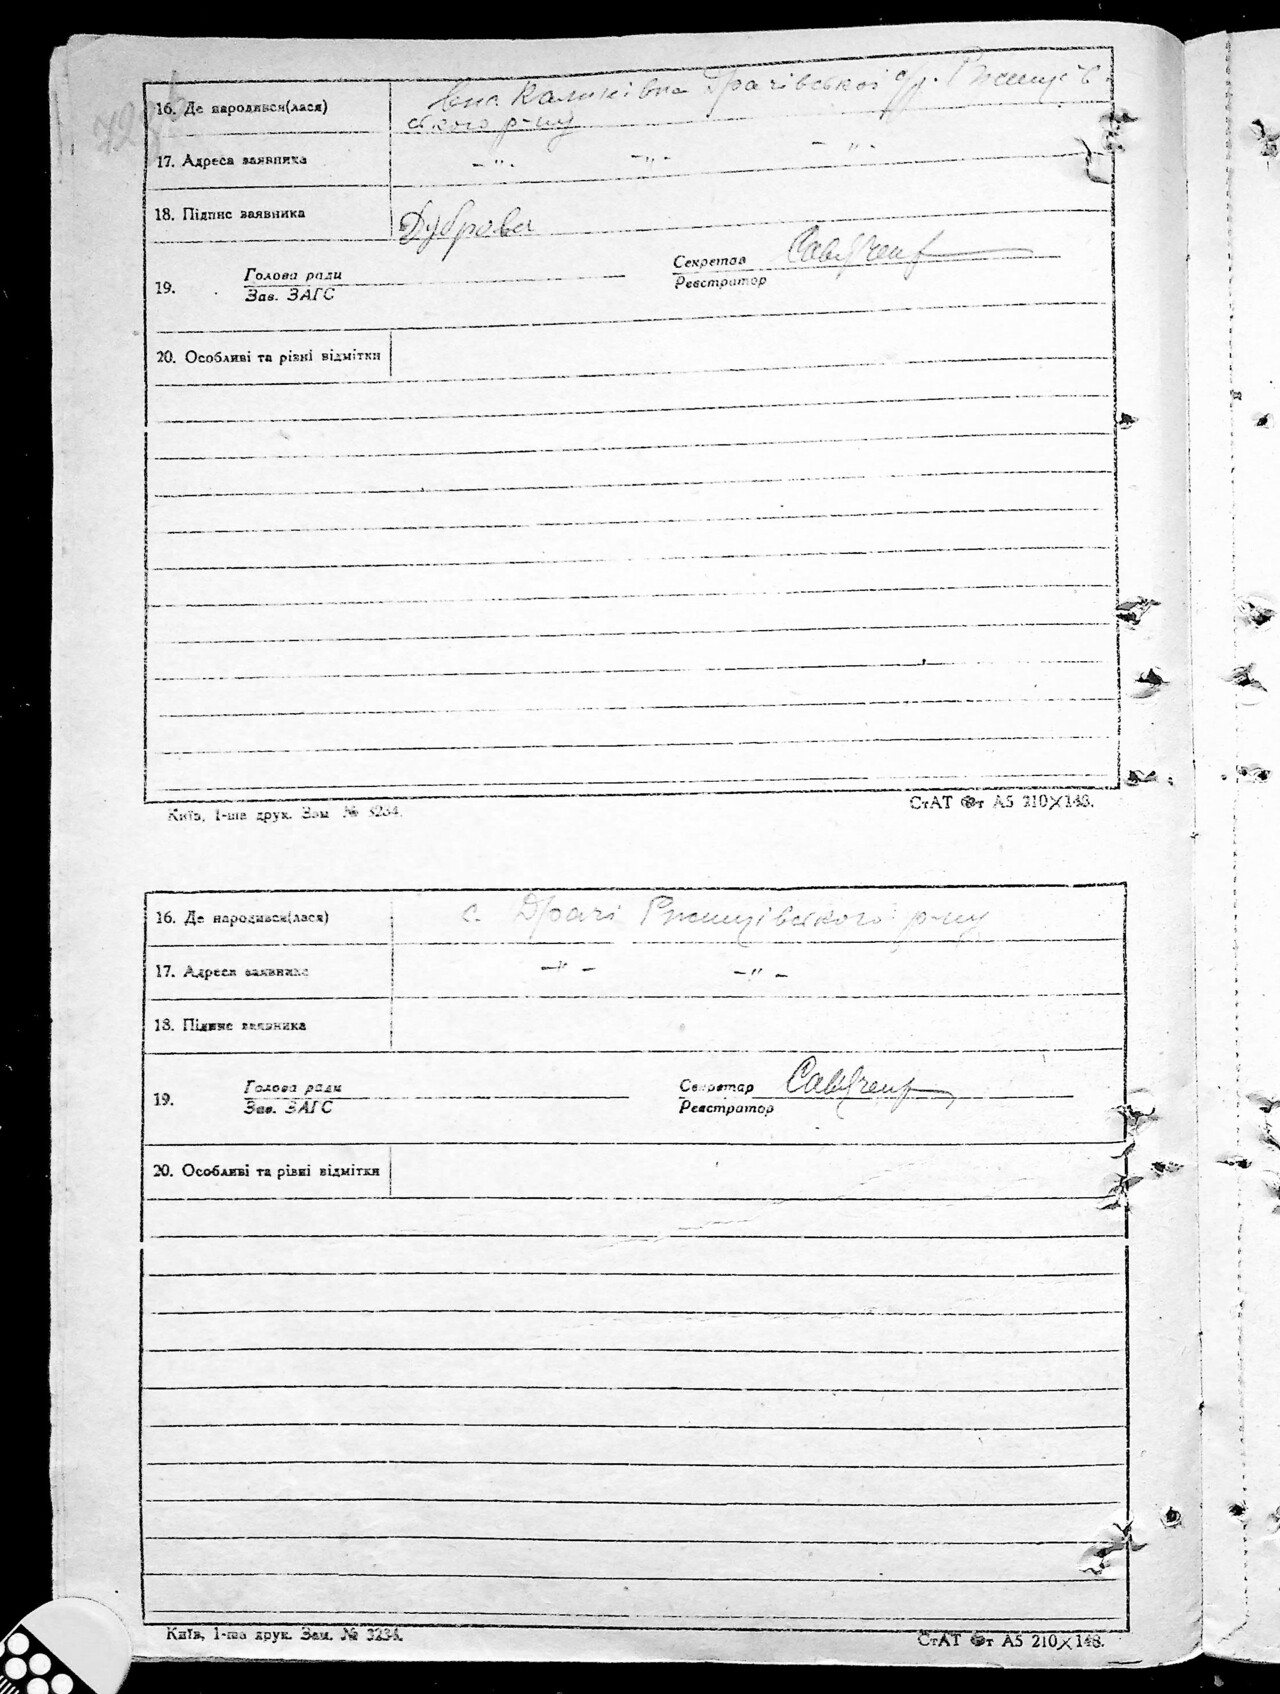 16. Де народився(лася) Драчівської с/р. Ржищів-
ського р-ну
17. Адреса заявника -"- -"- -"-
18. Підпис заявника Дуброва
19. Голова ради
Зав. ЗАГС
Секретар Савченко
Реєстратор
20. Особливі та рівні відмітки
Київ, 1-ша друк. Зам. № 3234.
СтАТ Фт А5 210×148.
16. Де народився(лася) с. Драчі Ржищівського р-ну
17. Адреса заявника -"- -"-
18. Підпис заявника
19. Голова ради
Зав. ЗАГС
Секретар Савченко
Реєстратор
20. Особливі та рівні відмітки
Київ, 1-ша друк. Зам. № 3234.
СтАТ Фт А5 210×148.